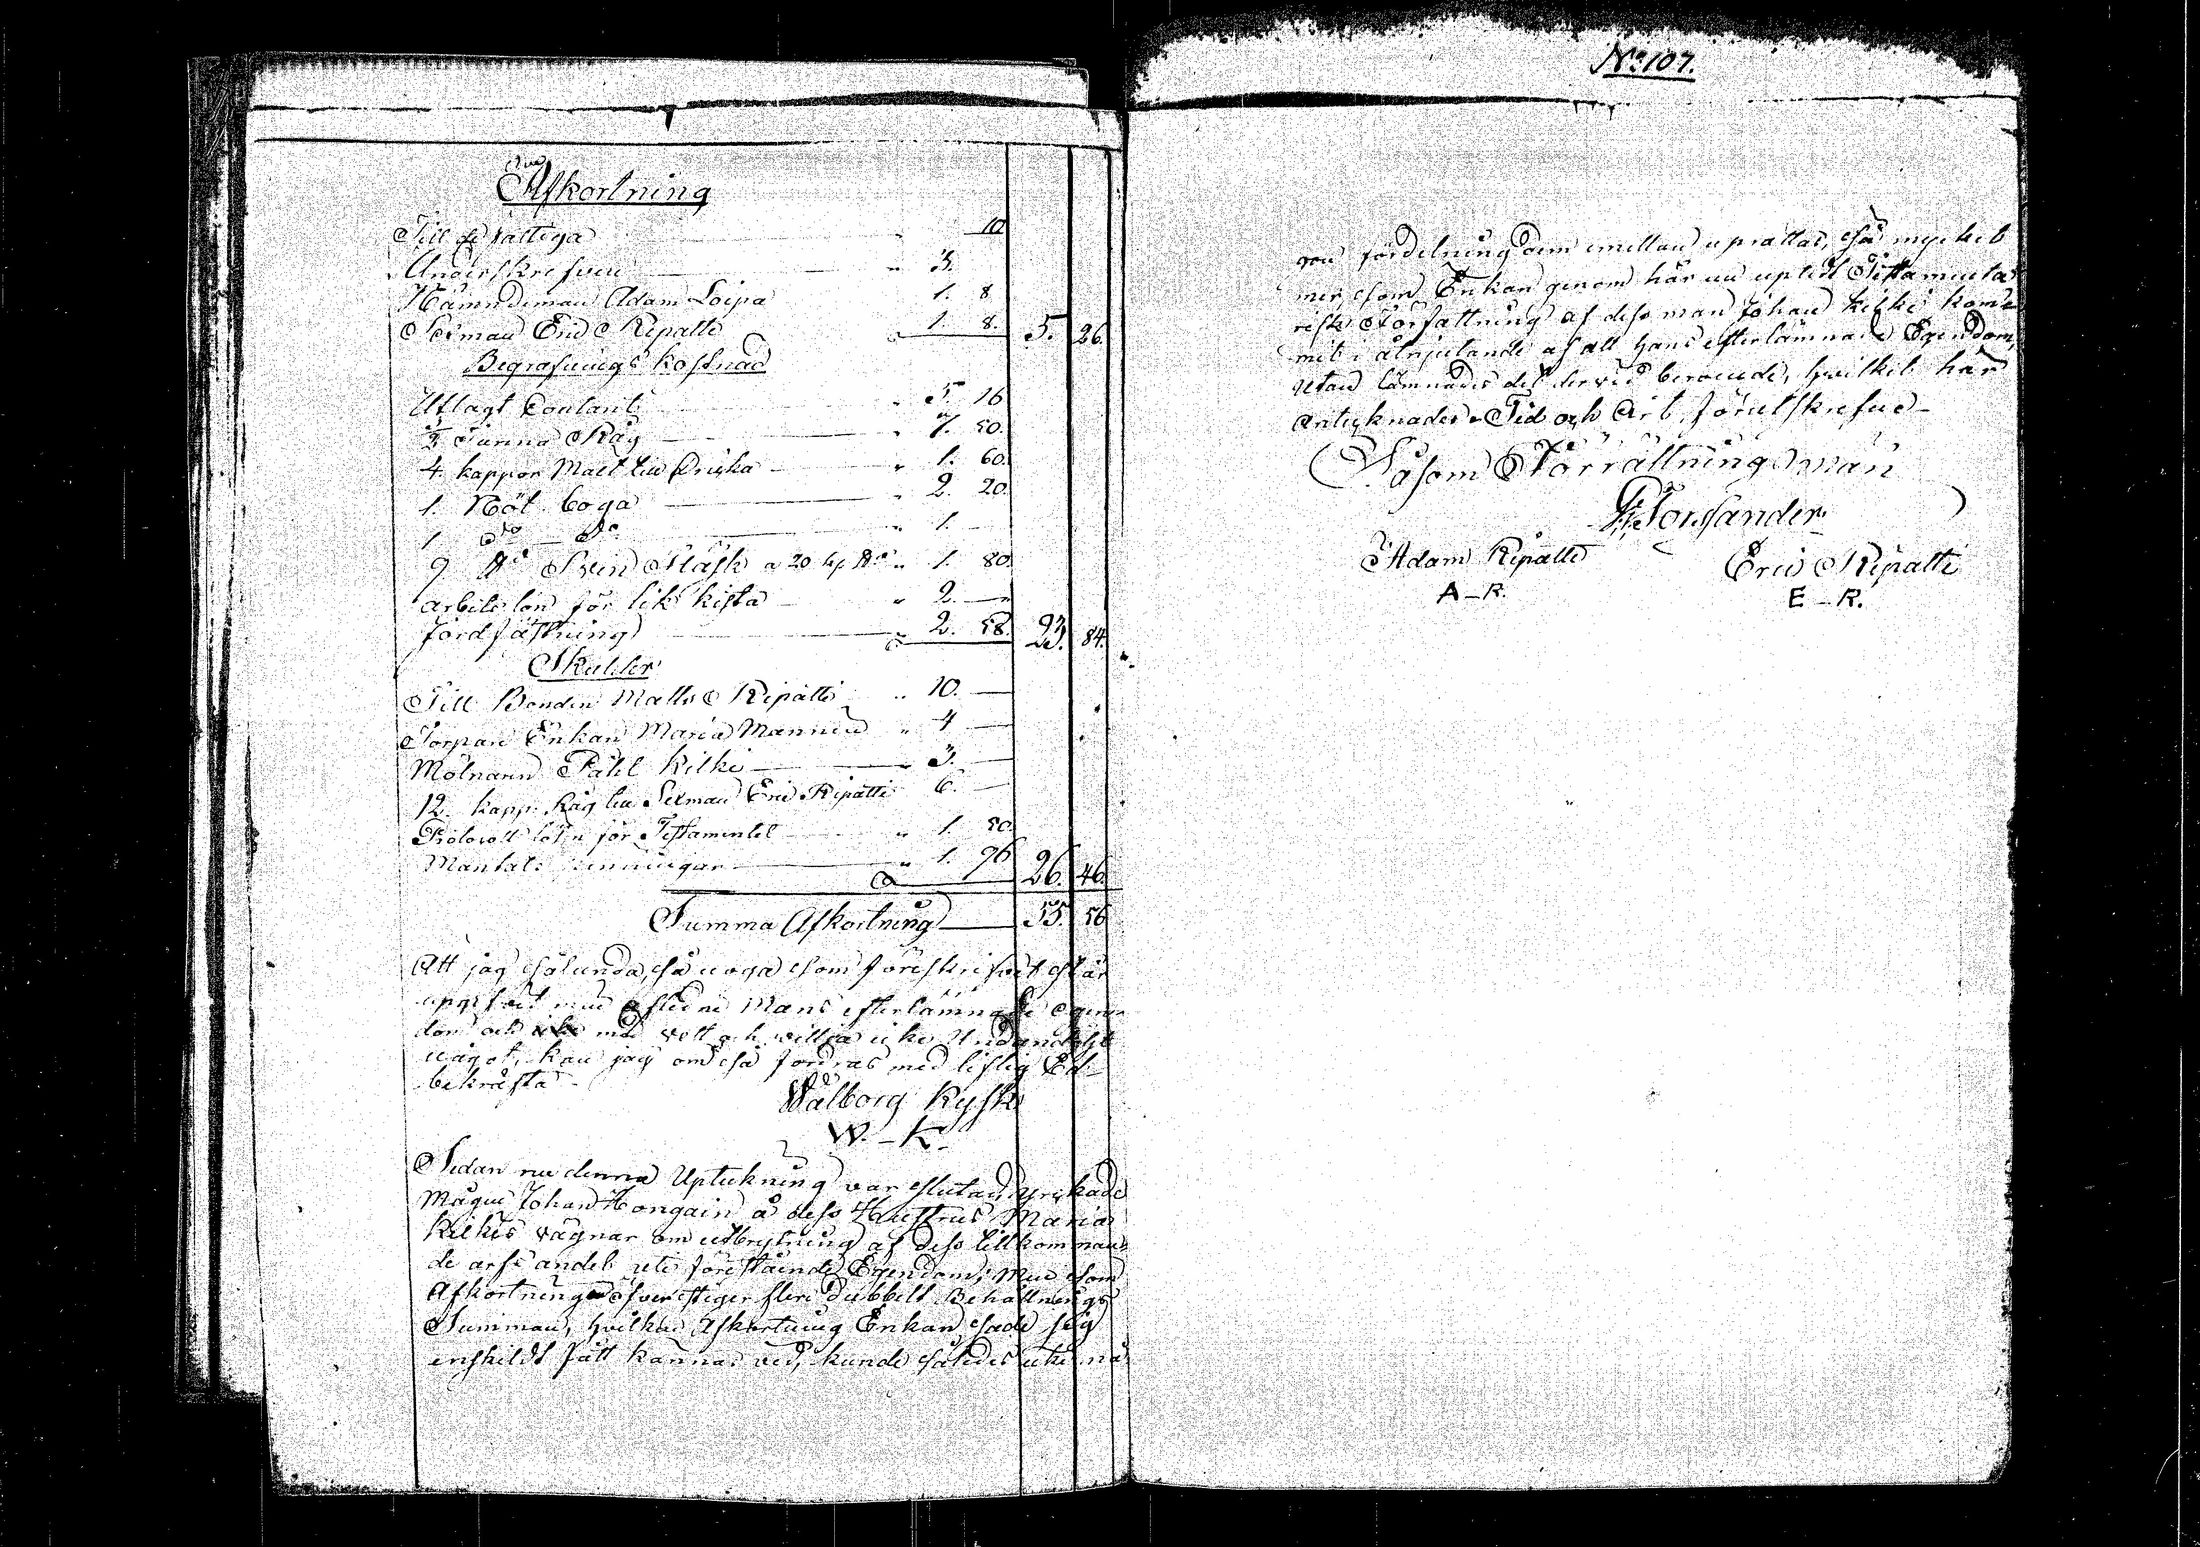 Afkortning
Till de fattiga " 10
Underskrefven " 3.
Nämndeman Adam Loipa 1. 8
Sexman Eric Ripatti " 1. 8. 5. 26.
Begrafnings kostnad
Utlagt Contant " 5. 16
1/2 Tunna Råg " 7. 50.
4. kappor Malt till Dricka " 1. 60.
1. Nöt boga " 2. 20.
1 do do " 1. —
9 ℔ Svin Fläsk a 20 kp ℔ " 1. 80.
arbets lön för lik kista " 2. —
Jordfästning " 2. 58. 23. 84.
Skulder
Till Bonden Matts Ripatti " 10. —
Torpare Enkan Maria Mannin " 4 —
Mölnarn Påhl Kilki " 3. —
12. kapp. Råg till Sexman Eric Ripatti 6. —
Protocoll lösn för Testamentet " 1. 50.
Mantals penningar " 1. 96 26. 46.
Summa Afkortning 55. 56
Att jag sålunda, så noga som föreskrifvet står
upgifvit min aflidne Mans efterlämnade egen-
dom och med vett och willja icke Undandolgt
något, kan jag om så fordras med liflig Ed
bekräfta
Wålborg Kyski
W. – K.
Sedan nu denna Upteckning var slutad, yrckade
Mågen Johan Hongain å dess Hustrus Maria
Kilkis vägnar om utbrytning af dess tillkomman-
de arfs andel uti förestående Egendom; Men som
Afkortningen öfverstiger flere dubbelt Behållnings
Summan, hvilken Afkortning Enkan sade sig
enskildt fått kännas ved, kunde således icke nå
No. 107.
gon fördelning dem imellan uprättas, så mycket
mer, som Enkan genom här nu uptedd Testamenta
risk Författning af dess man Johan Kilki kom-
mit i åtnjutande af all hans efterlämnade Egendom,
Utan lämnades det dervid beroende, hvilket här
antecknades. Tid och Ort förutskrefne
Såsom Förrättningsman
Forssander
Adam Ripatti Eric Ripatti
A – R. E – R.